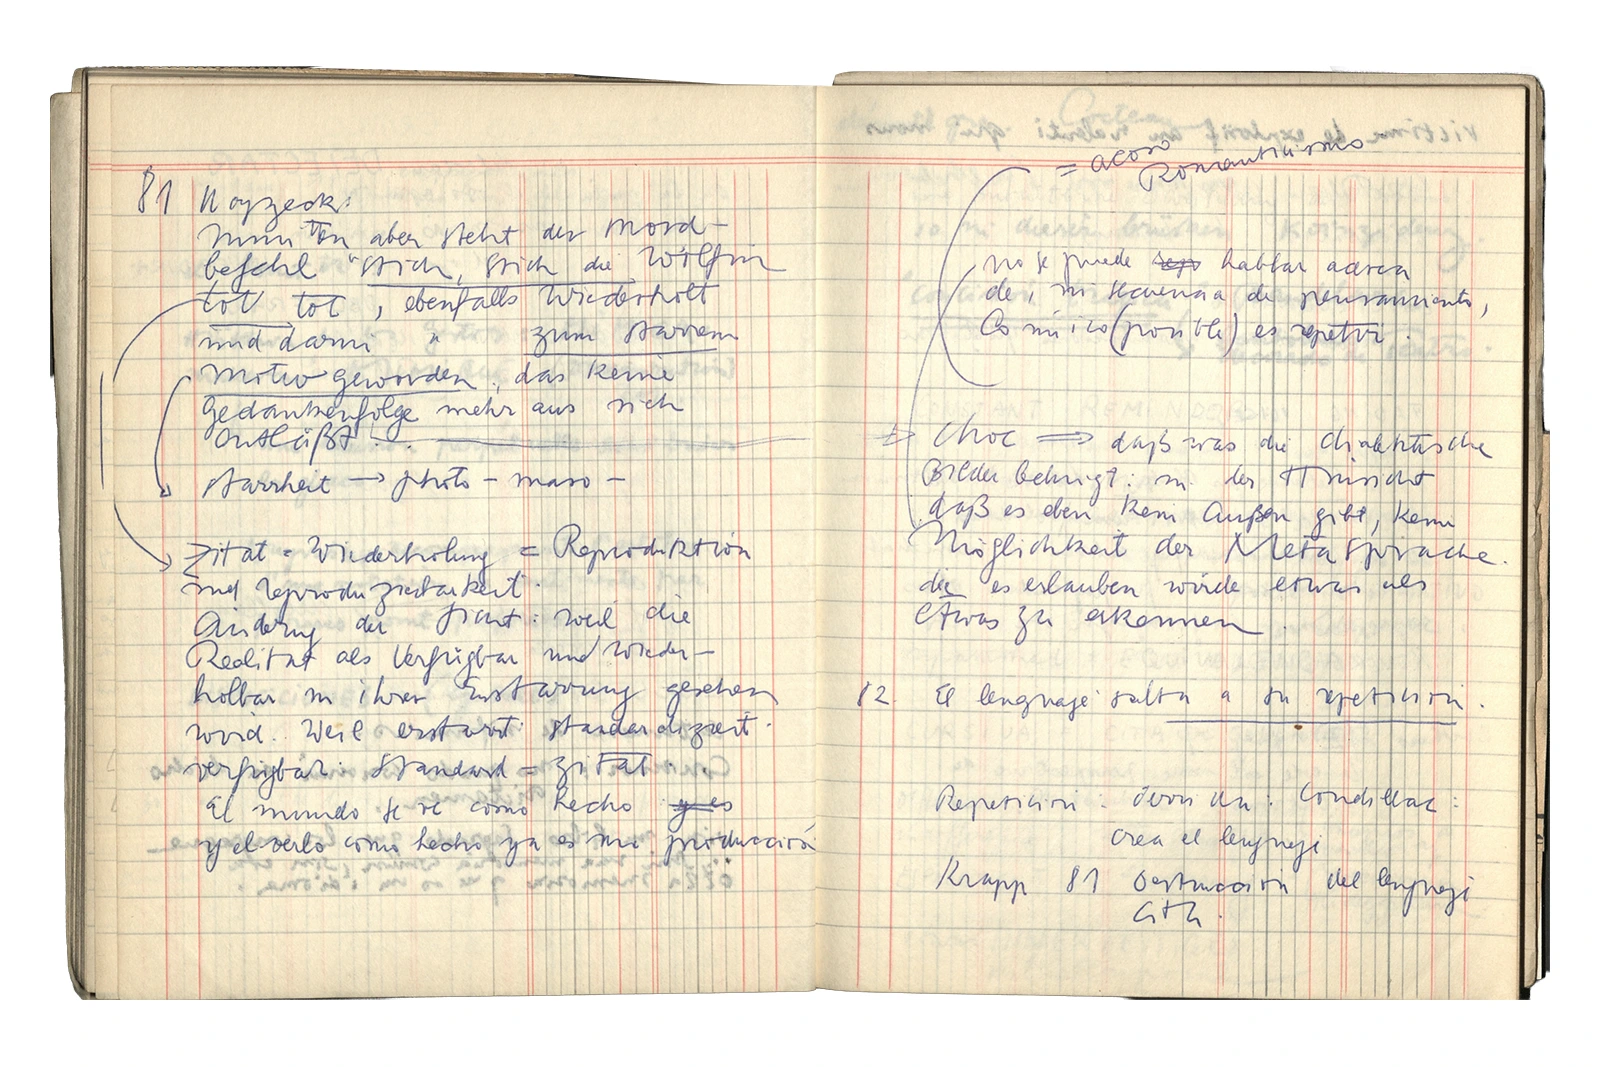 81 Woyzeck:
Nun "Ton aber steht der Mord-
befehl "stich, stich die Wölfin
tot tot, ebenfalls wiederholt
und darin " zum starren
Motiv geworden, das keine
Gedankenfolge mehr aus sich
entläßt..
Starrheit → photo - maso -
Zitat = Wiederholung = Reproduktion
und reproduzierbarkeit.
Änderung der Sicht: weil die
Realität als Verfügbar und wieder-
holbar in ihrer Erstarrung gesehen
wird. Weil erstarrt: standardiziert.
verfügbar: Standard = Zitat.
El mundo se ve como hecho y es
y el verlo como hecho ya es una producción
= acoso
Romanticismo
no se puede hablar acerca
de, ni secuencia de pensamiento,
lo único (posible) es repetir.
Choc ⇒ daß was die dialektische
Bilder bedingt: in der Hinsicht
daß es eben kein Außen gibt, kein
Möglichkeit der Metasprache.
die es erlauben würde etwas als
Etwas zu erkennen.
82. El lenguaje salta a su repetición.
Repetición: Derrida: Condillac:
crea el lenguaje
Krapp 81 Destrucción del lenguaje